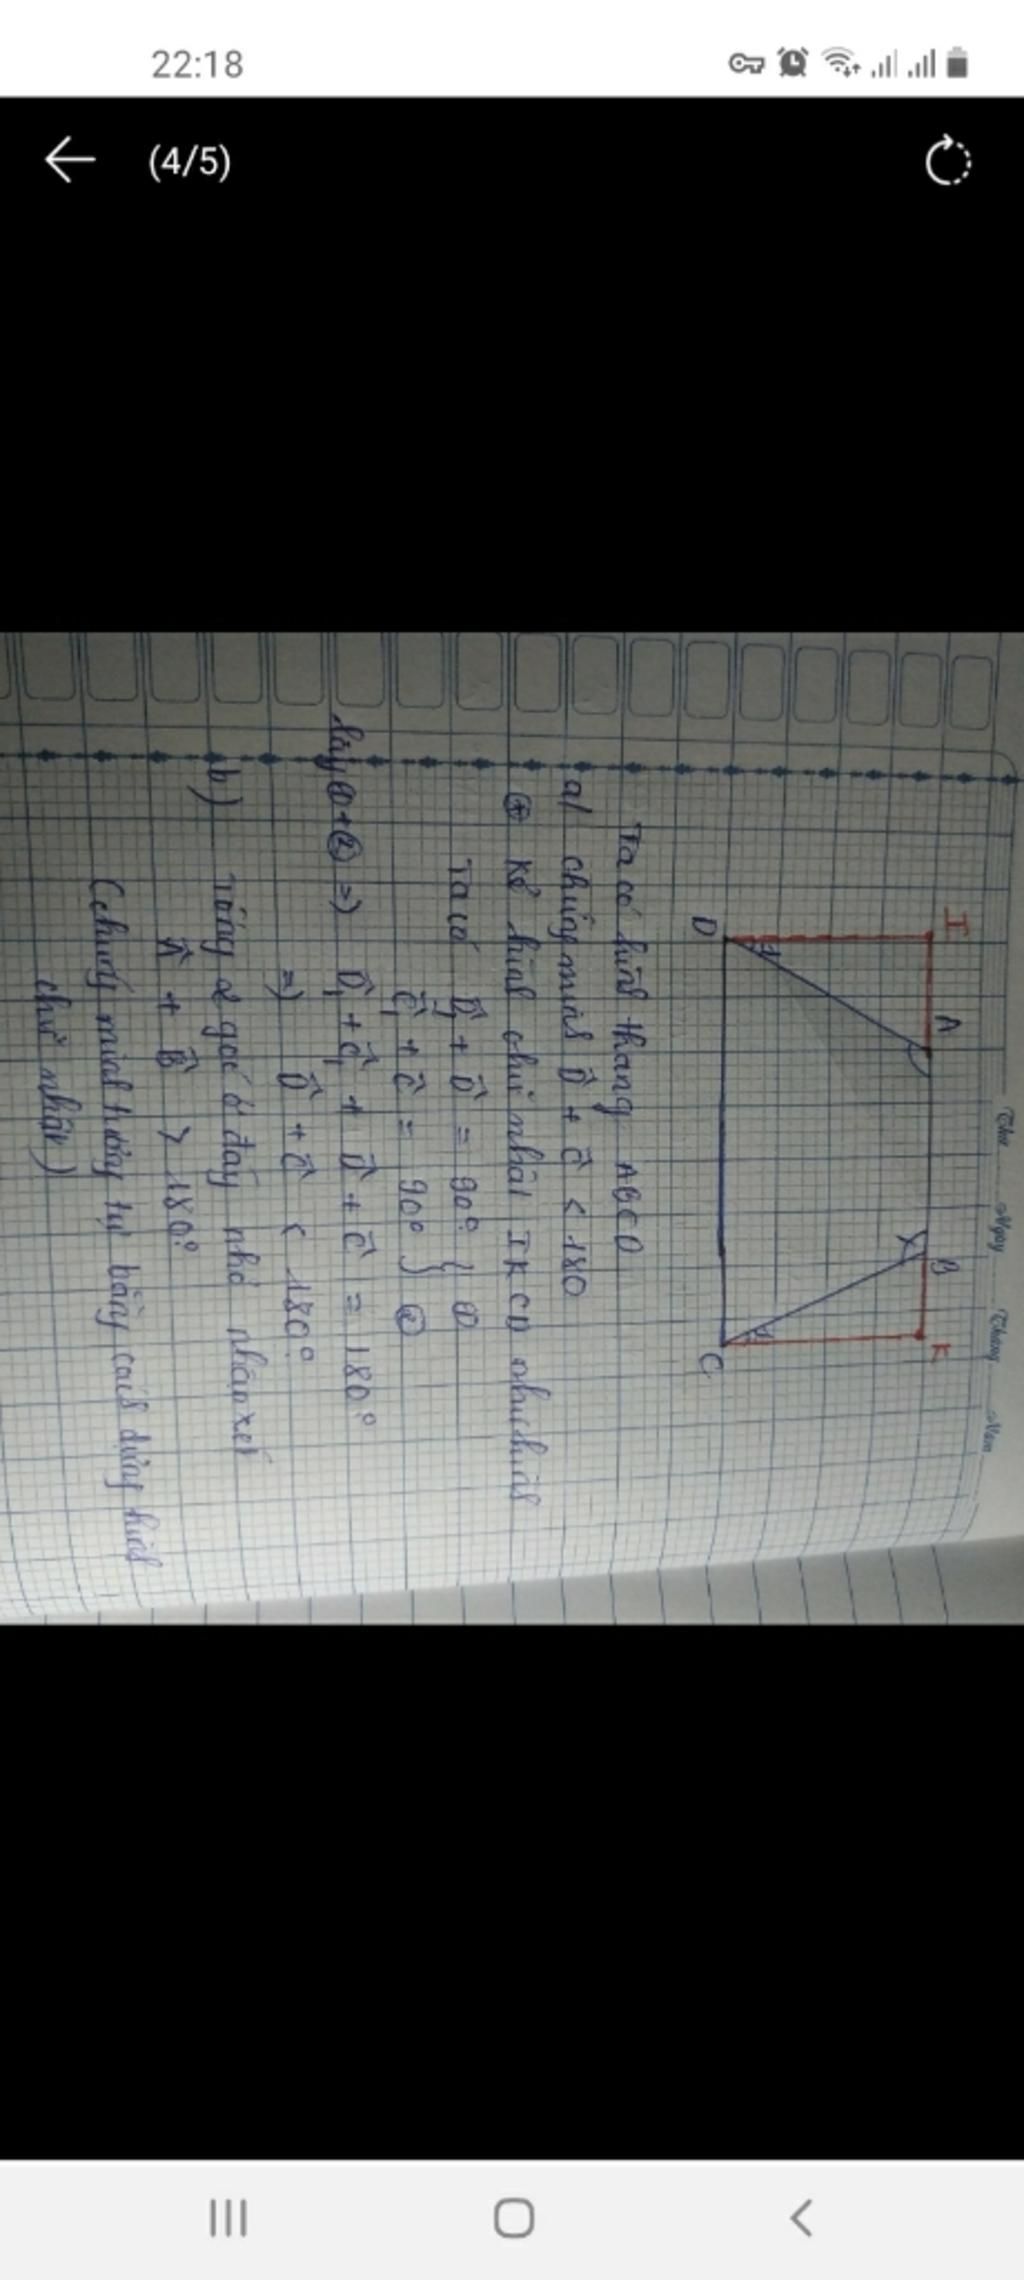 22:18
(4/5)
Thứ Ngày Tháng Năm
I A B K
D C
Ta có hình thang ABCD
a/ chứng minh D̂ + Ĉ < 180
⊕ Kẻ hình chữ nhật IKCD như hình
Ta có D̂₁ + D̂ = 90° } ①
Ĉ₁ + Ĉ = 90° } ②
lấy ① + ② => D̂₁ + Ĉ₁ + D̂ + Ĉ = 180°
=> D̂ + Ĉ < 180°
b) Tổng 2 góc ở đáy nhỏ
Â + B̂ > 180°
(chứng minh tương tự bằng cách dựng hình
chữ nhật)